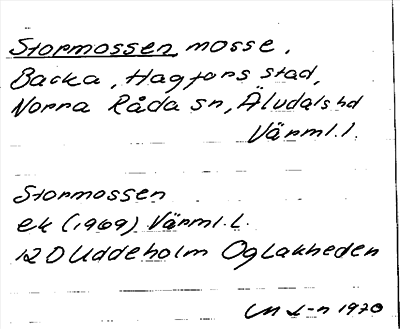 Stormossen, mosse,
Backa, Hagfors stad,
Norra Råda sn, Älvdals hd
Värml. l.
Stormossen
ek (1969) Värml. L.
12D Uddeholm Oglakheden
1970